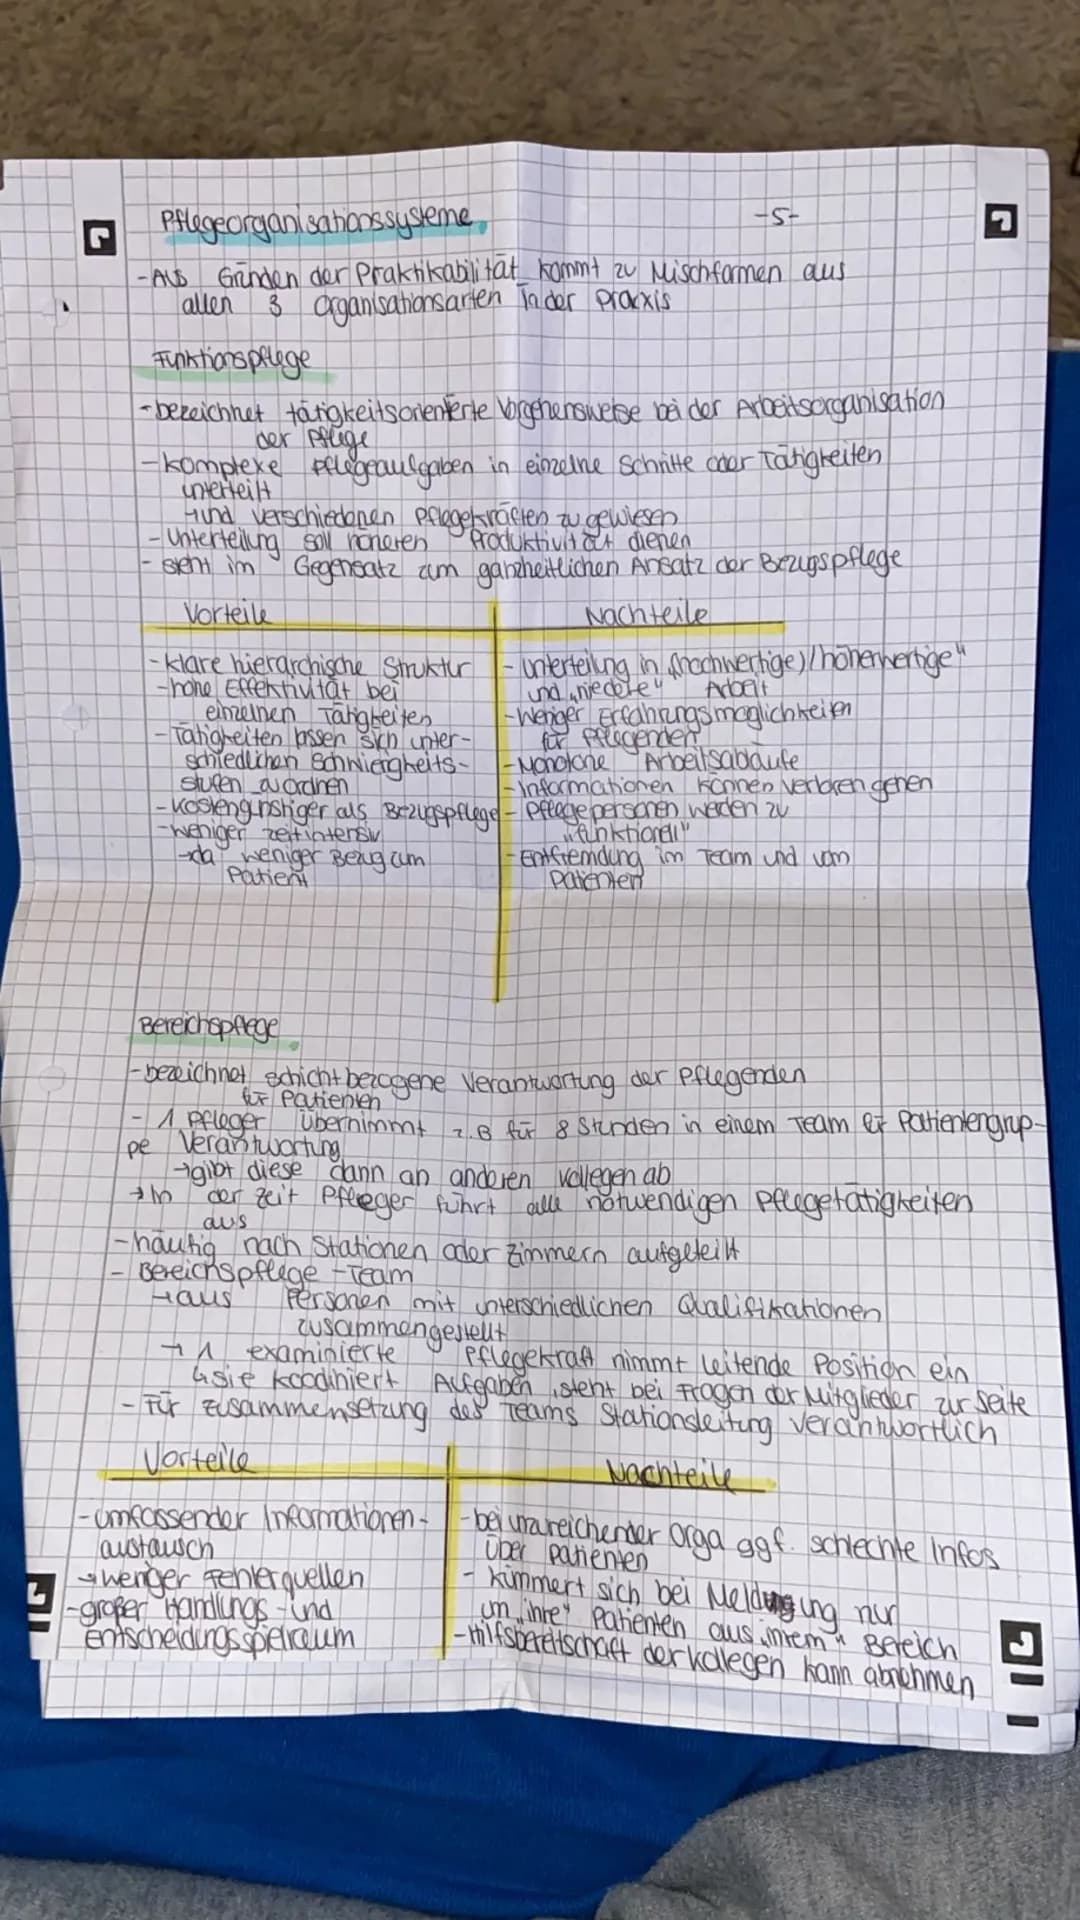 Pflegeorganisationssysteme
-5-
- Aus Gründen der Praktikabilität kommt zu Mischformen aus
allen 3 Organisationsarten in der Praxis
Funktionspflege
- bezeichnet tätigkeitsorientierte Vorgehensweise bei der Arbeitsorganisation
der Pflege
- komplexe Pflegeaufgaben in einzelne Schritte oder Tätigkeiten
unterteilt
→und verschiedenen Pflegekräften zu gewiesen
- Unterteilung soll höheren Produktivität dienen
- sieht im Gegensatz zum ganzheitlichen Ansatz der Bezugspflege
Vorteile
- klare hierarchische Struktur
- hohe Effektivität bei
einzelnen Tätigkeiten
- Tätigkeiten lassen sich unter-
schiedlichen Schwierigkeits-
stufen zuordnen
- kostengünstiger als Bezugspflege
- weniger zeitintensiv
→da weniger Bezug zum
Patient
Nachteile
- Unterteilung in (hochwertige)/höherwertige"
und „niedere" Arbeit
- Weniger Erfahrungsmöglichkeiten
für Pflegenden
- Monotone Arbeitsabäufe
- Informationen können verloren gehen
- Pflegepersonen werden zu
„funktionell"
- Entfremdung im Team und vom
Patienten
Bereichspflege
- bezeichnet schichtbezogene Verantwortung der Pflegenden
für Patienten
- 1 Pfleger übernimmt z.B für 8 Stunden in einem Team für Patientengrup-
pe Verantwortung
→gibt diese dann an anderen Kollegen ab
→ In der Zeit Pfleger führt alle notwendigen Pflegetätigkeiten
aus
- häufig nach Stationen oder Zimmern aufgeteilt
- Bereichspflege-Team
→aus Personen mit unterschiedlichen Qualifikationen
zusammengestellt
→ 1 examinierte Pflegekraft nimmt leitende Position ein
↳sie koodiniert Aufgaben, steht bei Fragen der Mitglieder zur Seite
- Für Zusammensetzung des Teams Stationsleitung verantwortlich
Vorteile
- umfassender Informationen-
austausch
→weniger Fehlerquellen
- großer Handlungs- und
entscheidungsspielraum
Nachteile
- bei unzureichender Orga ggf. schlechte Infos
über Patienten
- kümmert sich bei Meldung nur
um „ihre" Patienten aus „ihrem" Bereich
- Hilfsbereitschaft der Kollegen kann abnehmen